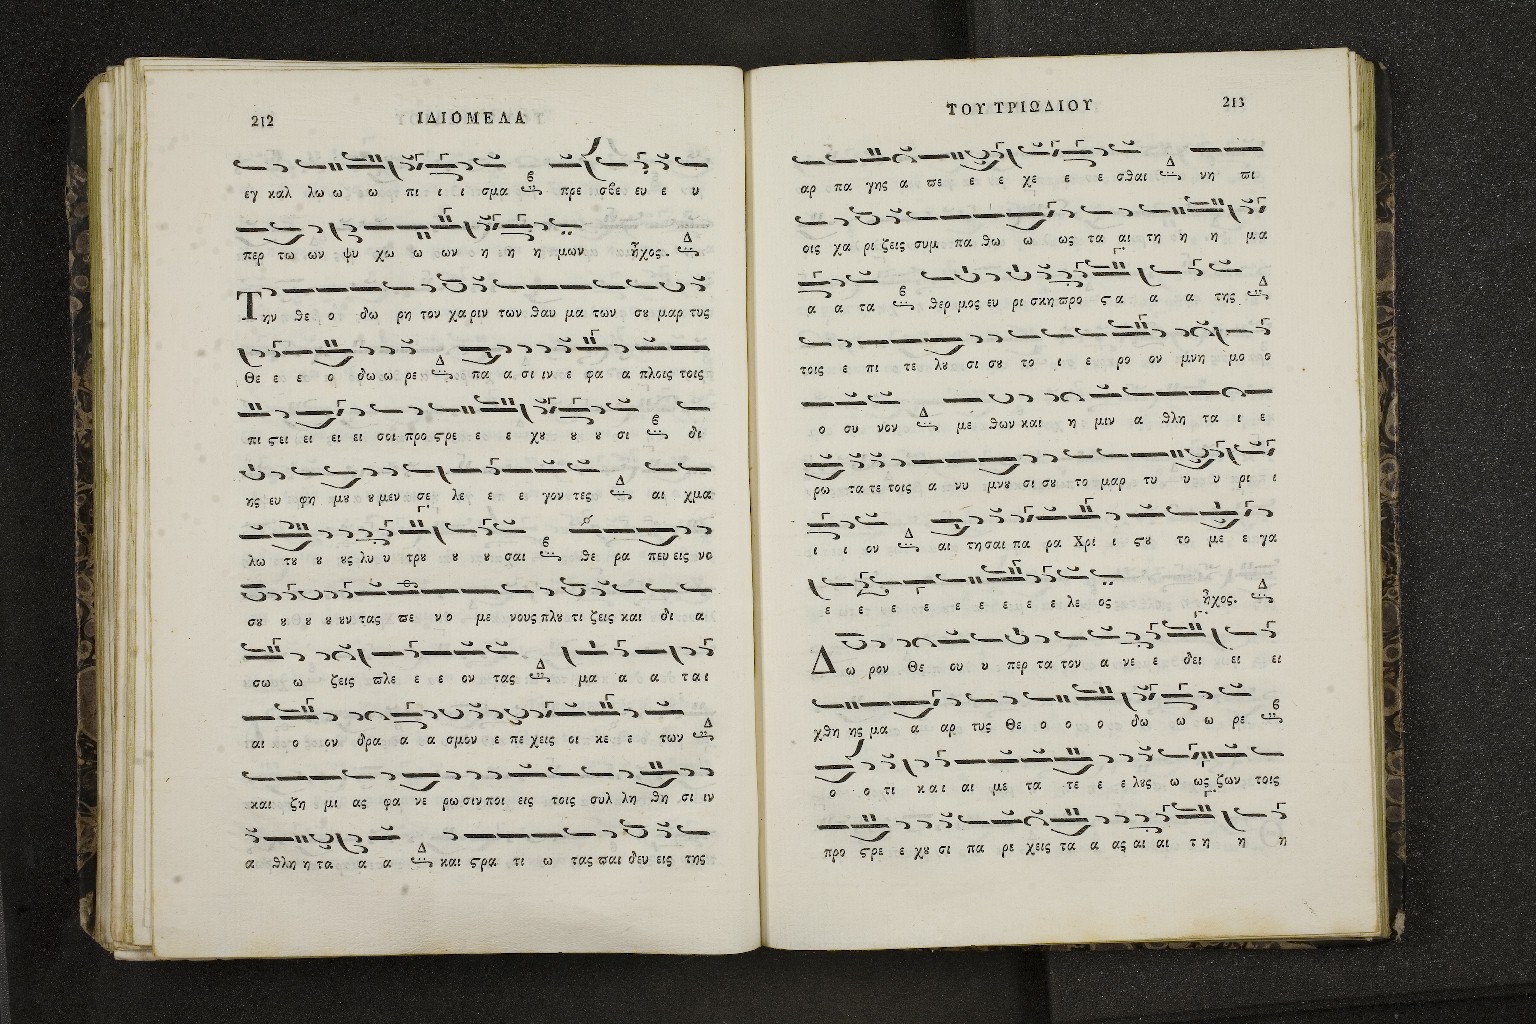 212
ΙΔΙΟΜΕΛΑ
εγ καλ λω ω ω πι ι ι σμα πρε σβε ευ ε υ
περ τω ων ψυ χω ω ων η η η μων ἦχος. Δ
Την θε ο δω ρη τον χα ριν των θαυ μα των σȣ μαρ τυς
Θε ε ε ο δω ω ρε Δ πα α σι ιν ε φα α πλοις τοις
πι ϛει ει ει ει σοι προ ϛρε ε ε χȣ ȣ ȣ σι δι
ης ευ φη μȣ ȣ μεν σε λε ε ε γον τες Δ αι χμα
λω τȣ ȣ ȣς λυ υ τρȣ ȣ ȣ ȣ σαι θε ρα πευ εις νο
σȣ ȣ ȣ ȣ ȣν τας πε νο με νους πλȣ τι ζεις και δι α
σω ω ζεις πλε ε ε ον τας Δ μα α α ται
αι ο ον δρα α α σμον ε πε χεις οι κε ε των Δ
και ζη μι ας φα νε ρω σιν ποι εις τοις συλ λη θη σι ιν
α θλη η τα α α Δ και ϛρα τι ω τας παι δευ εις της
ΤΟΥ ΤΡΙΩΔΙΟΥ
213
αρ πα γης α πε ε ε χε ε ε σθαι Δ νη πι
οις χα ρι ζεις συμ πα θω ω ως τα αι τη η η μα
α α τα θερ μος ευ ρι σκη προ ϛα α α της Δ
τοις ε πι τε λȣ σι σȣ το ι ε ρο ον μνη μο ο
ο συ νον Δ με θων και η μιν α θλη τα ι ε
ρω τα τε τοις α νυ μνȣ σι σȣ το μαρ τυ υ υ ρι ι
ι ι ον Δ αι τησαι πα ρα Χρι ι ϛȣ το με ε γα
ε ε ε ε ε ε ε ε λε ος ἦχος. Δ
Δω ρον Θε ου υ περ τα τον α νε ε δει ει ει
χθη ης μα α αρ τυς Θε ο ο ο δω ω ω ρε
ο ο τι και αι με τα τε ε ε λȣς ω ως ζων τοις
προ ϛρε ε χȣ σι πα ρε χεις τα α ας αι αι τη η η